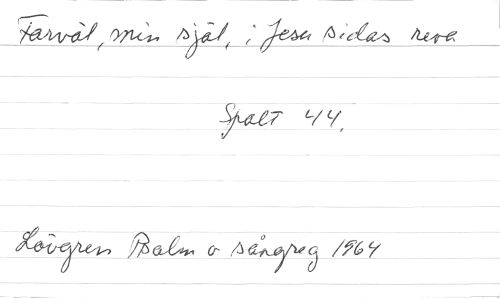 Farväl, min själ, i Jesu sidas reva
Spalt 44.
Lövgren Psalm o sångreg 1964